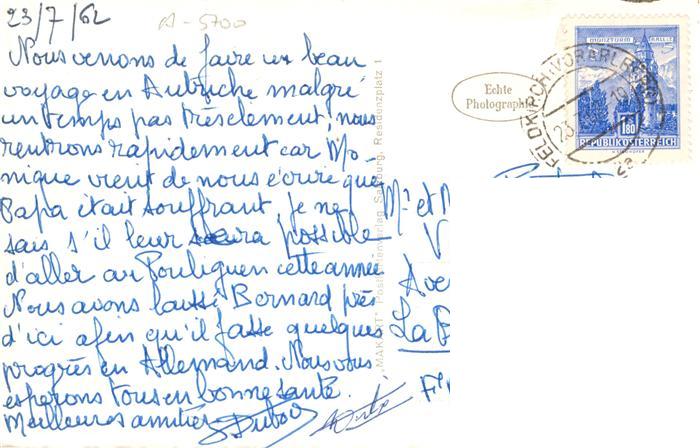 23/7/62
A-5700
Nous venons de faire un beau
voyage en Autriche malgré
un temps pas très clement, nous
rentrons rapidement car Mo-
nique vient de nous écrire que
Papa était souffrant, je ne
sais s'il leur sera possible
d'aller au Pouliguen cette année
Nous avons laissé Bernard près
d'ici afin qu'il fasse quelques
progrès en Allemand. Nous vous
esperons tous en bonne santé.
Meilleures amitiés
"MAKART" Postkartenverlag Salzburg, Residenzplatz 1
Echte
Photographie
MÜNZTURM HALL
1.80
REPUBLIK ÖSTERREICH
FELDKIRCH VORARLBERG
23.
Mr et M
V
Ave
La B